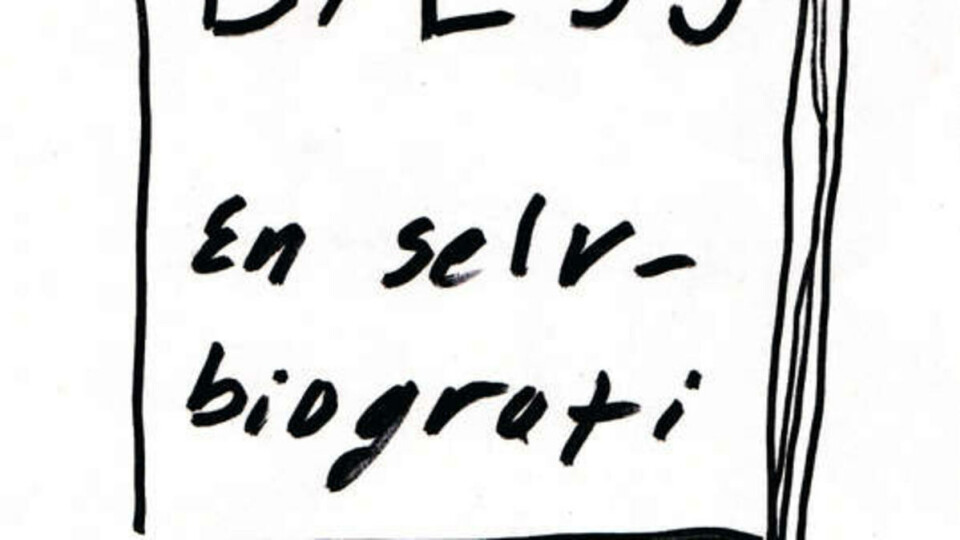 En selv-
biografi